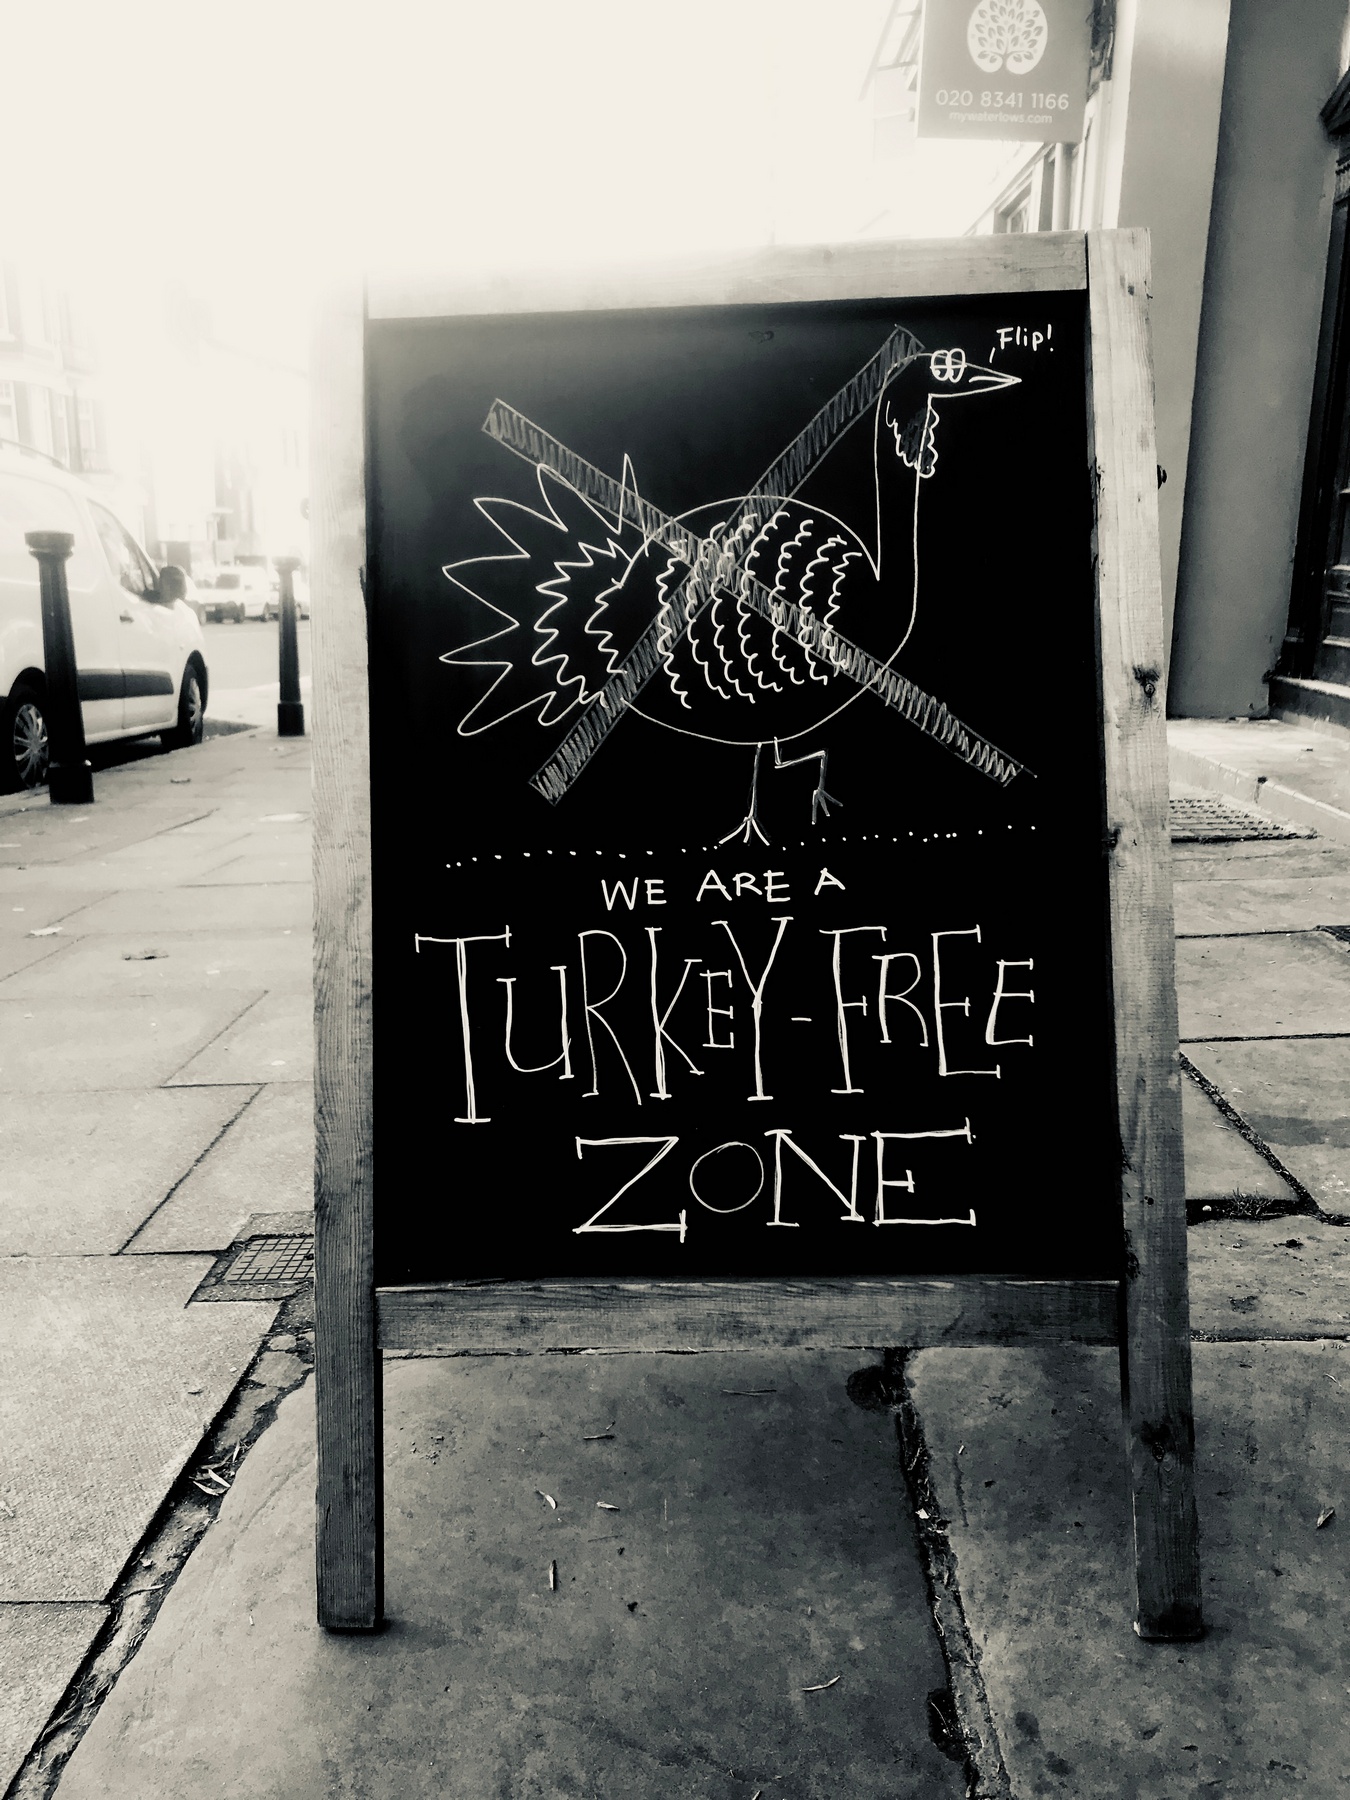 020 8341 1166
mywaterlows.com
Flip!
WE ARE A
TURKEY-FREE
ZONE